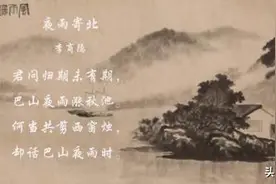 夜雨寄北
李商隐
君问归期未有期，
巴山夜雨涨秋池。
何当共剪西窗烛，
却话巴山夜雨时。
头